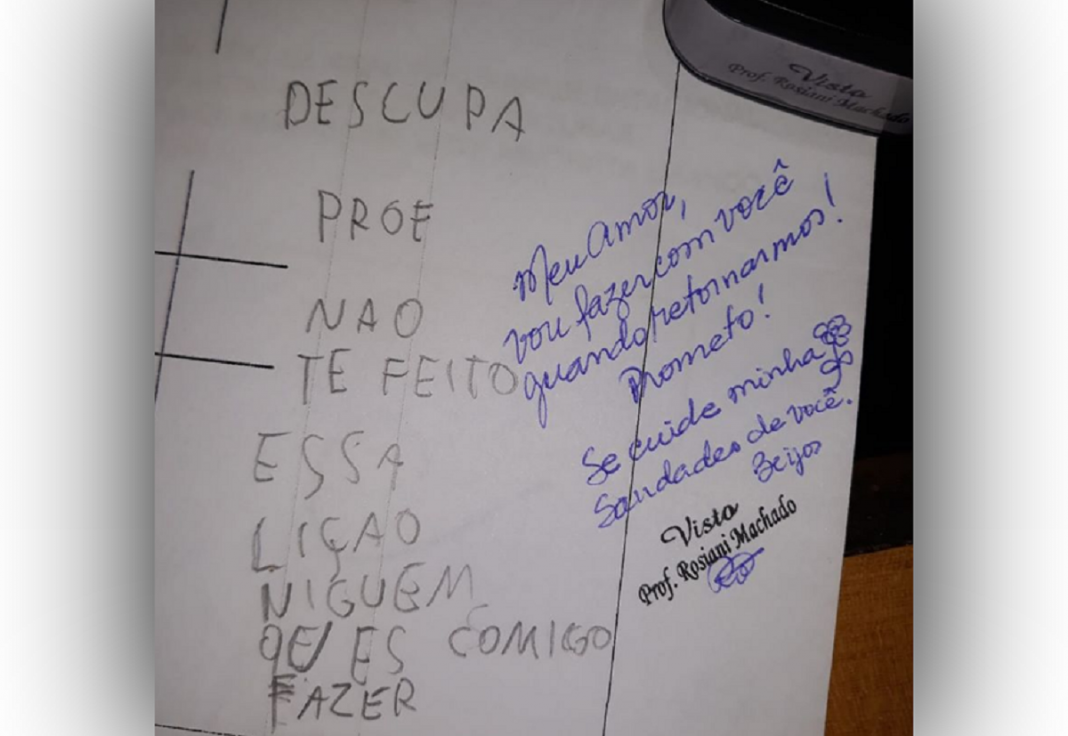 DESCUPA
PROF
NAO
TE FEITO
ESSA
LIÇAO
NIGUEM
QE/ ES COMIGO
FAZER
Meu Amor,
vou fazer com você
quando retornarmos!
Prometo!
Se cuide minha
Saudades de você.
Beijos
Visto
Prof. Rosiani Machado
Visto
Prof. Rosiani Machado